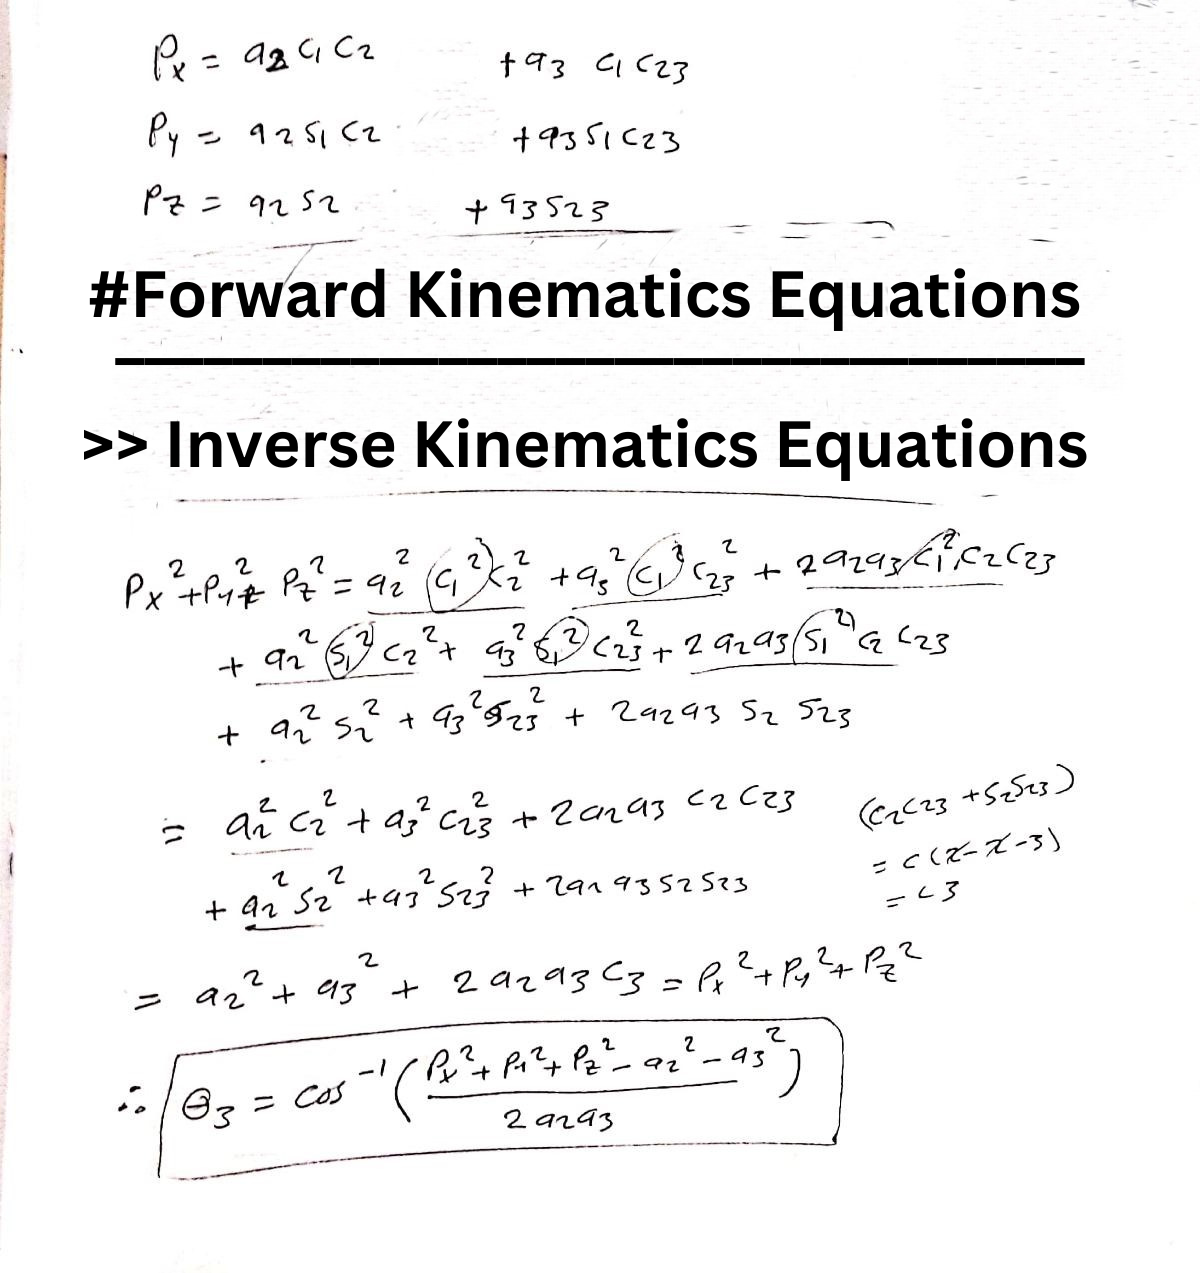 Px = a2 C1 C2 + a3 C1 C23
Py = a2 S1 C2 + a3 S1 C23
Pz = a2 S2 + a3 S23
#Forward Kinematics Equations
>> Inverse Kinematics Equations
Px² + Py² + Pz² = a2² (C1²) C2² + a3² (C1²) C23² + 2 a2 a3 (C1²) C2 C23
+ a2² (S1²) C2² + a3² (S1²) C23² + 2 a2 a3 (S1²) C2 C23
+ a2² S2² + a3² S23² + 2 a2 a3 S2 S23
= a2² C2² + a3² C23² + 2 a2 a3 C2 C23
+ a2² S2² + a3² S23² + 2 a2 a3 S2 S23
(C2 C23 + S2 S23)
= C(2-2-3)
= C3
= a2² + a3² + 2 a2 a3 C3 = Px² + Py² + Pz²
∴ θ3 = cos⁻¹ ( (Px² + Py² + Pz² - a2² - a3²) / 2 a2 a3 )